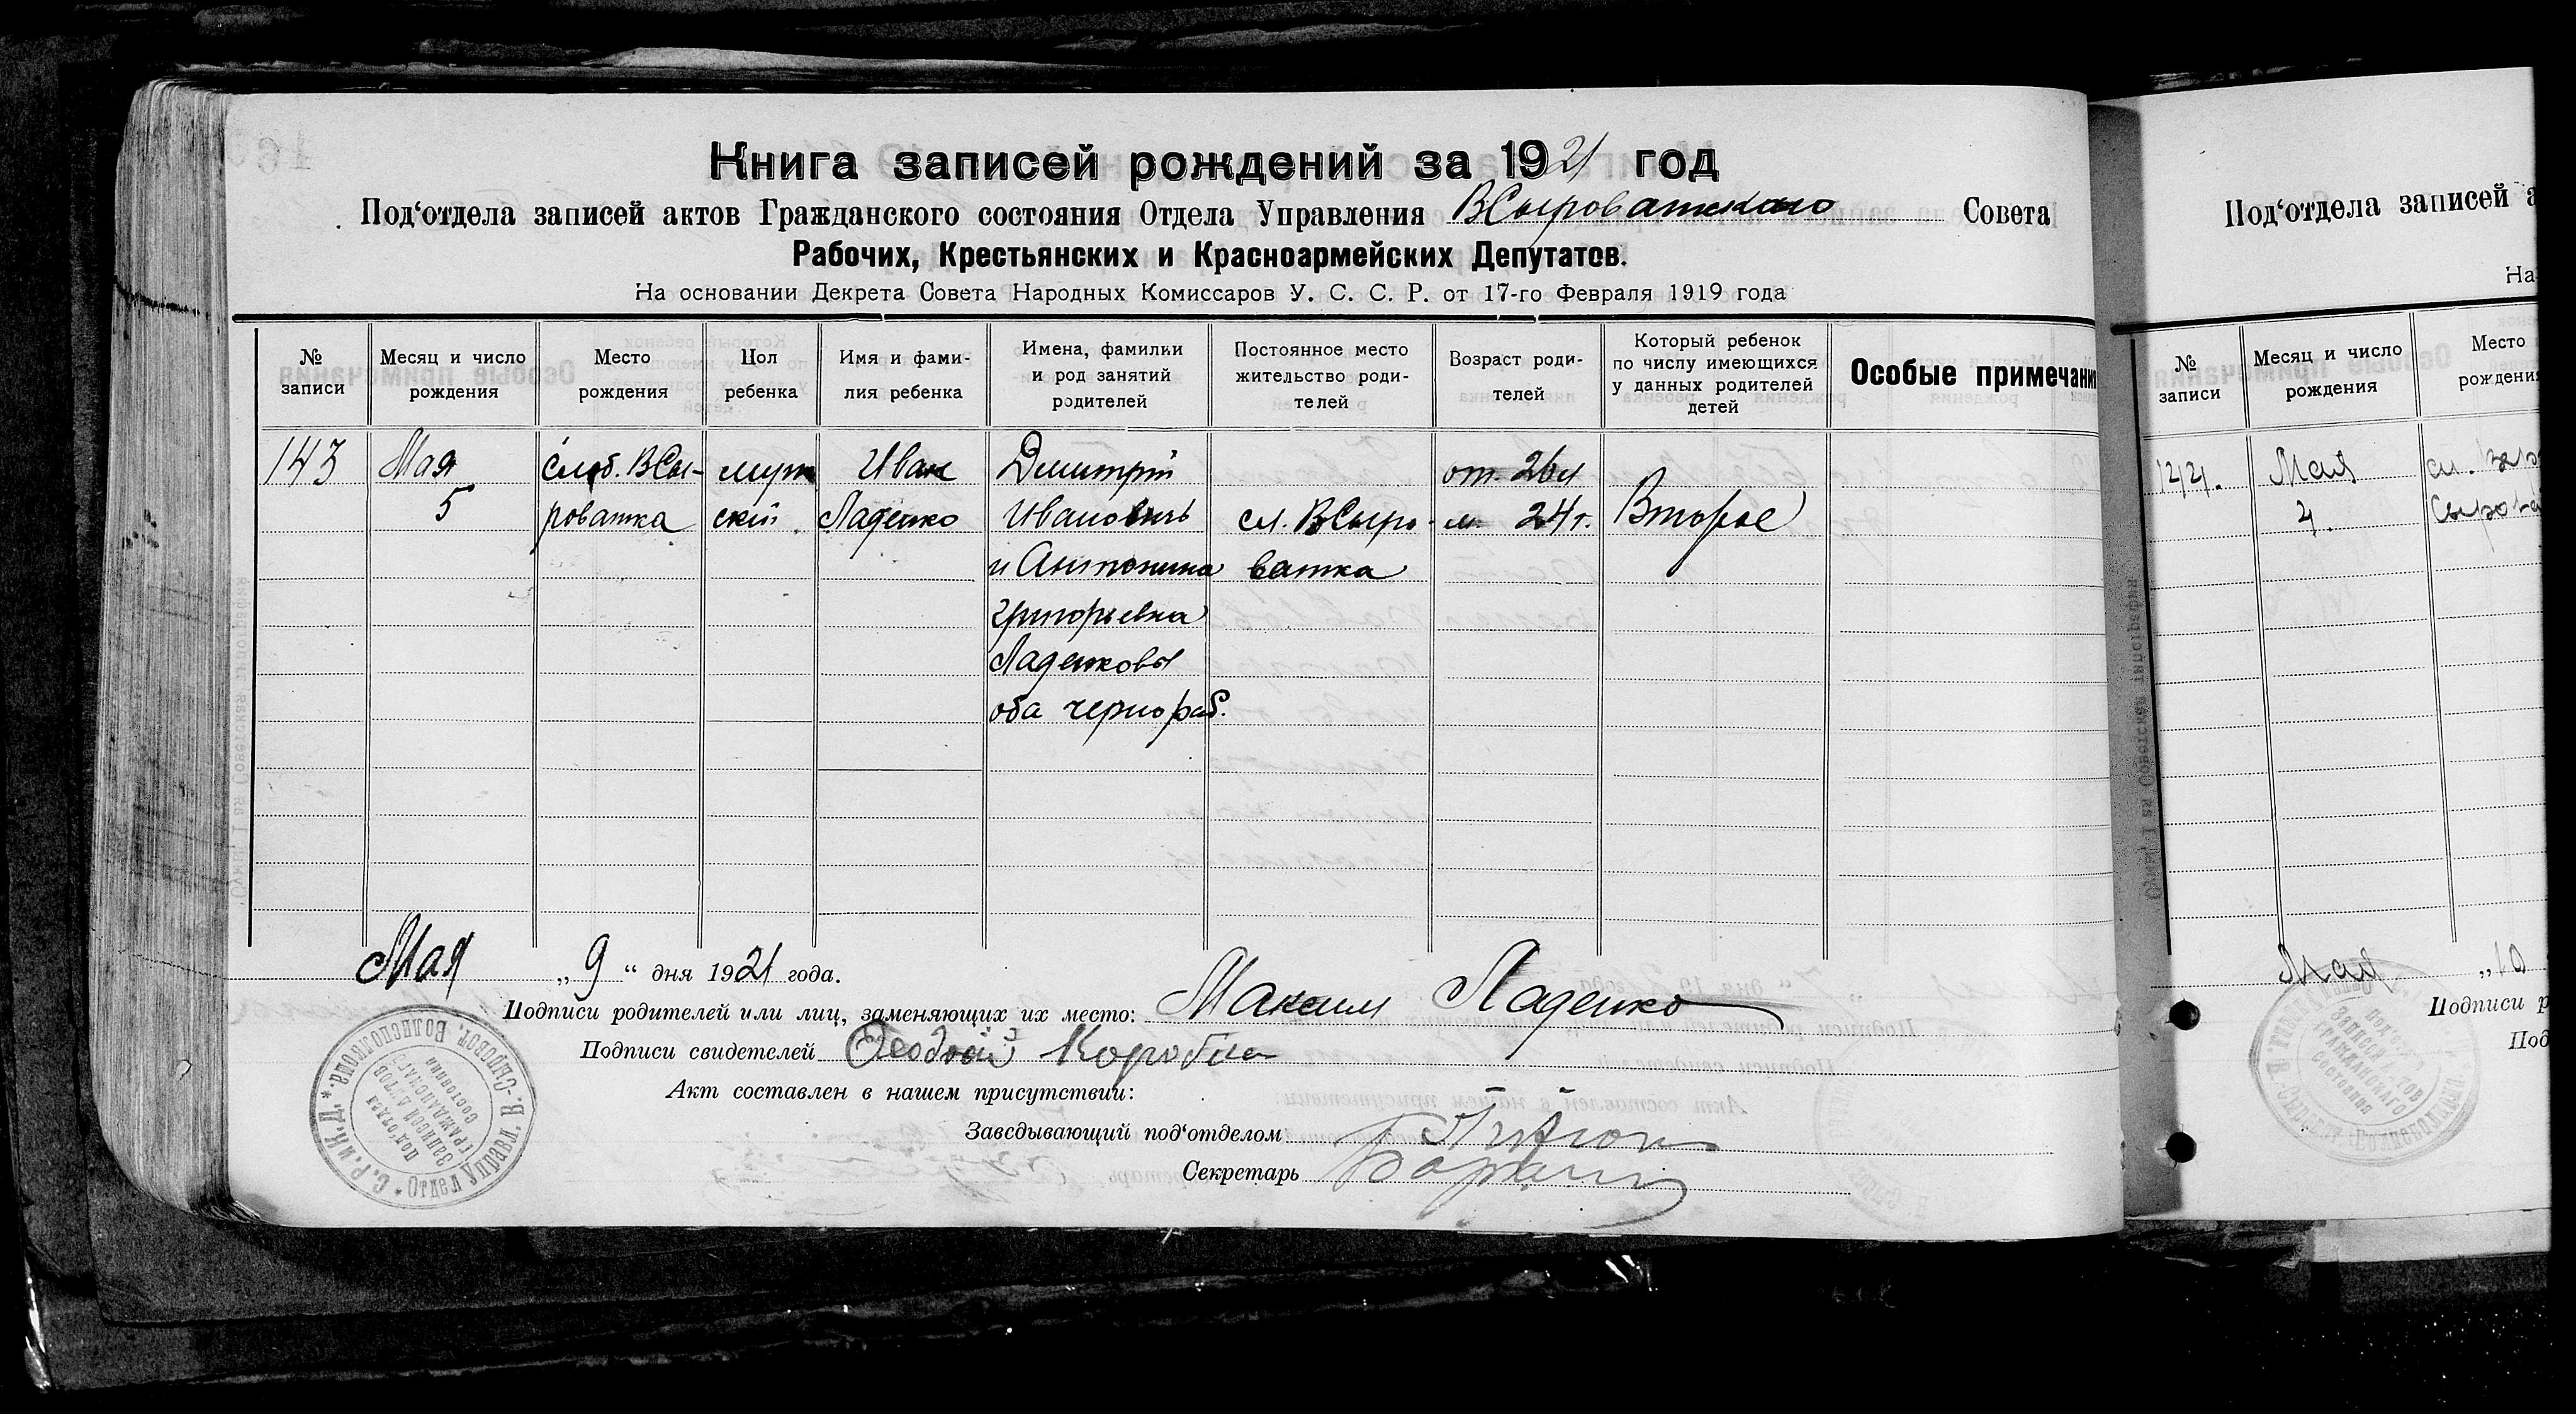 Книга записей рождений за 1921 год
Под‘отдела записей актов Гражданского состояния Отдела Управления ВСыроватского Совета
Рабочих, Крестьянских и Красноармейских Депутатов.
На основании Декрета Совета Народных Комиссаров У. С. С. Р. от 17-го Февраля 1919 года
№ записи
Месяц и число рождения
Место рождения
Пол ребенка
Имя и фами-
лия ребенка
Имена, фамилии
и род занятий
родителей
Постоянное место
жительство роди-
телей
Возраст роди-
телей
Который ребенок
по числу имеющихся
у данных родителей
детей
Особые примечани
143
Мая
5
слоб. ВСы-
роватка
муж
ский
Иван
Ладенко
Дмитрий
Иванович
и Антонина
Григорьевна
Ладенковы
оба чернораб.
сл. ВСыро-
ватка
от. 26 л
м. 24 г.
Второе
Мая „ 9 “ дня 1921 года.
Подписи родителей или лиц, заменяющих их место: Максим Ладенко
Подписи свидетелей
Акт составлен в нашем присутствии:
Заведывающий под‘отделом
Секретарь
С.Р.и К.Д. * Отдел Управл. В.-Сыроват. Волисполкома. *
Под‘отдел
Записей Актов
Гражданскаго
Состояния
Под‘отдела записей а
На
№ записи
Месяц и число рождения
Место
рождени
Мая
4.
Мая „10
Подписи р
Под